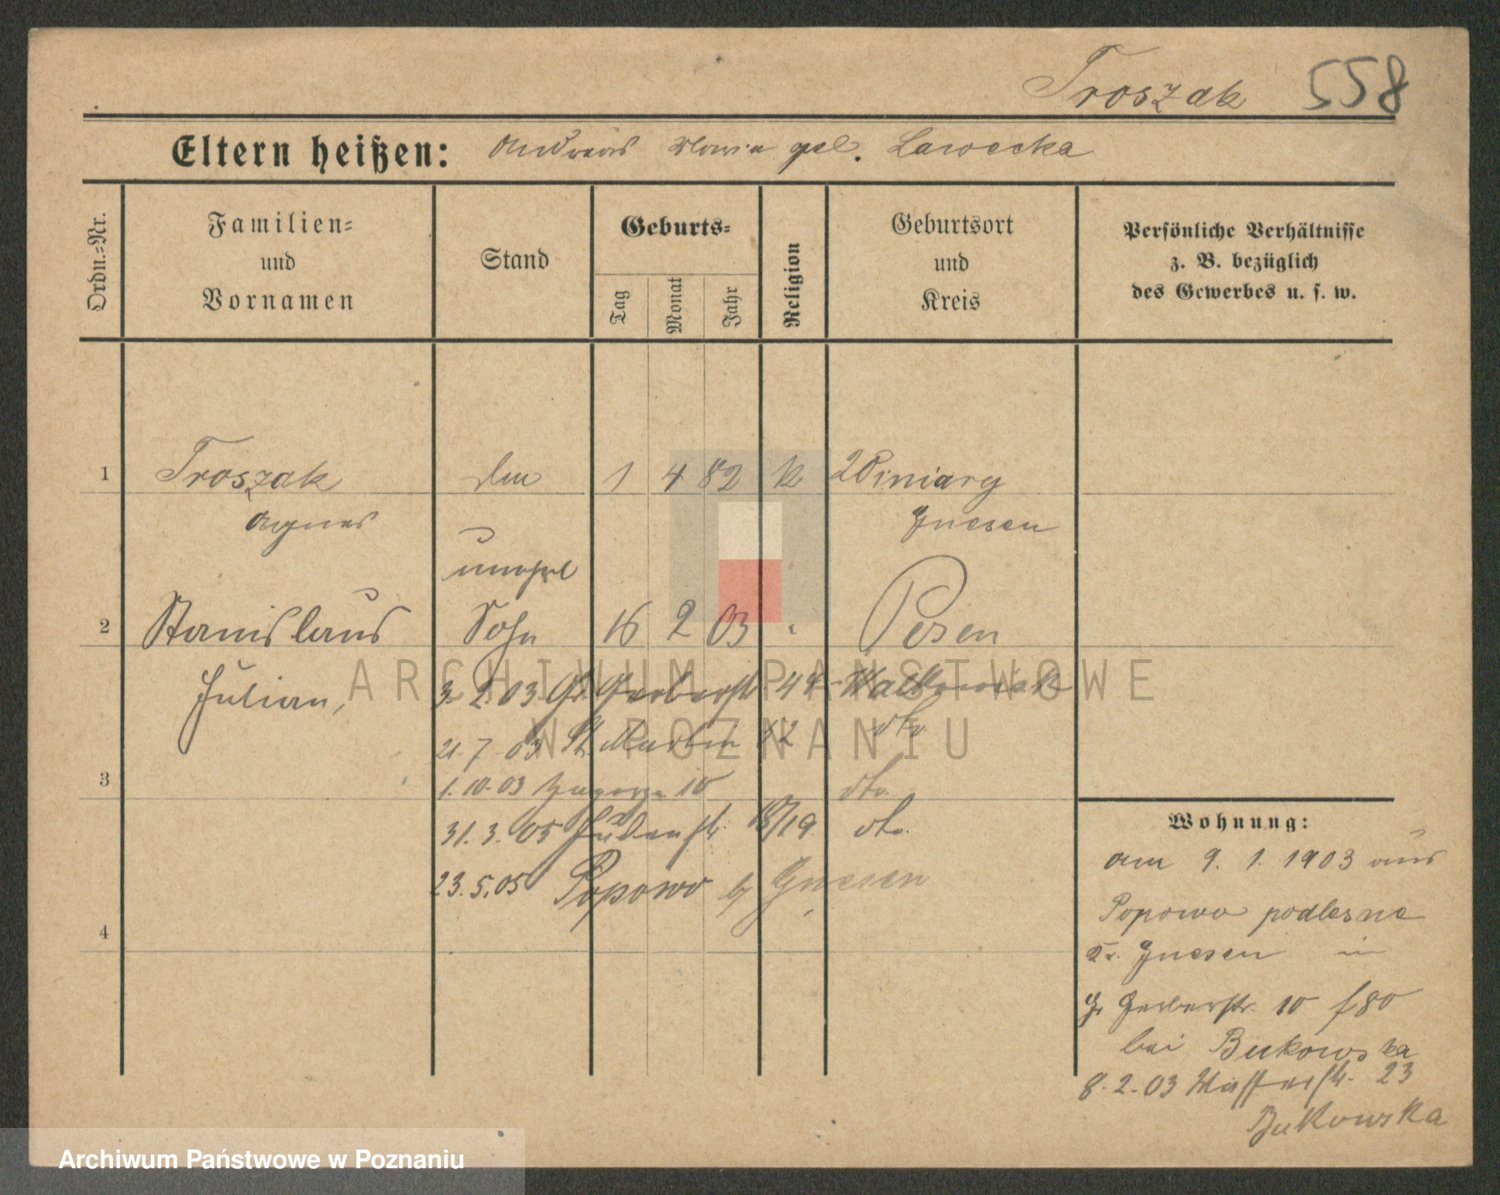 Troszak 558
Eltern heißen: Andreas Maria geb. Lawecka
Ordn.=Nr.
Familien=
und
Vornamen
Stand
Geburts=
Tag
Monat
Jahr
Religion
Geburtsort
und
Kreis
Persönliche Verhältnisse
z. B. bezüglich
des Gewerbes u. s. w.
1 Troszak 1 4 82 k Winiary
Agnes Gnesen
unehel
2 Stanislaus Sohn 16 2 03 " Posen
Julian,
3.2.03 Gr. Gerberstr 44 Walkowiak
21.7.03 St. Martin 52 dto
3
1.10.03 Zagorze 10 dto.
31.3.05 Judenstr. 18/19 dto.
23.5.05 Popowo b/ Gnesen
4
Wohnung:
am 9. 1. 1903 aus
Popowo podlesne
Kr. Gnesen in
Gr Gerberstr. 10
bei Bukowska
8.2.03 Wasserstr. 23
Bukowska
ARCHIWUM PAŃSTWOWE
W POZNANIU
Archiwum Państwowe w Poznaniu